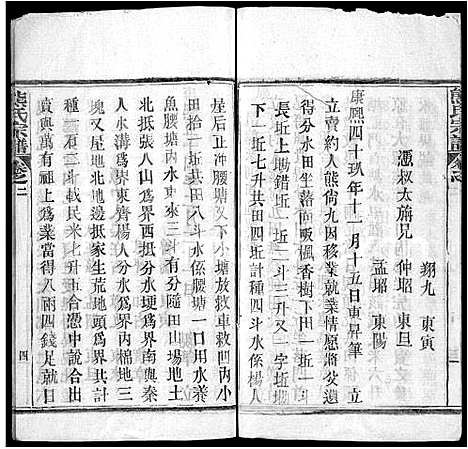 翔九　東寅
憑叔太旃兄　伸昭　東旦
孟昭　東陽
康熙四十玖年十一月十五日東昇筆　立
立賣約人熊尚九因移業就業情愿將續
得分水田坐落面吸楓香樹丁田一坵一斗
長坵上塝錯坵一坵二斗三升又一字坵塝
下一坵七升共田四坵計種四斗水係楊人
熊氏宗譜　卷之二
屋后正冲腰塘又下小塘放救車救凹內小
田拾坵一共田八斗水係腰塘一口用水養
魚腰塘內水東來三斗有分隨田山場地土
北抵張人山爲界西抵熊人分水埂爲界南與秦
人水溝爲界東齊楊人分水爲界界內棉地三
塊又屋地北地邊抵家生荒地頭爲界共田
種一石三斗載民米七升五合憑中說合出
賣與萬有祖上爲業當得八兩四錢足就日
四